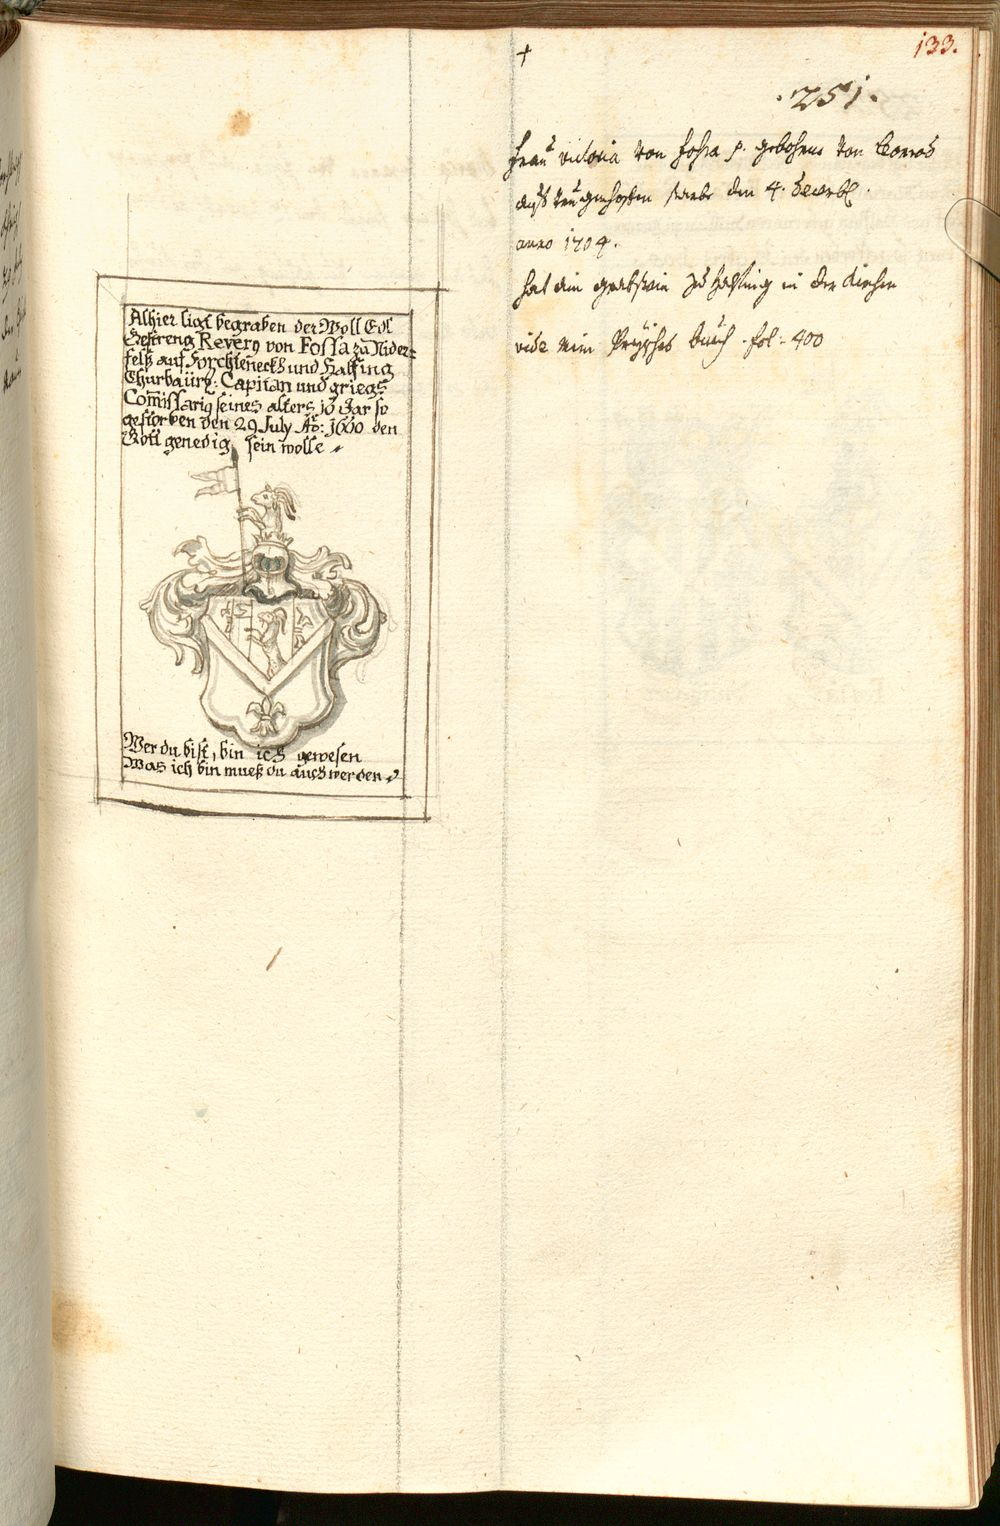 133.
+
·251·
Frau victoria von Fossa p. gebohrne von
starb den 4. Decembr.
anno 1704.
hat ain grabstein zu Halfing in der Kirchen
vide mein buech · fol · 400
Alhier ligt begraben der Woll Edl
Gestreng Revery von Fossa zu Nider=
felß auf Forchteneckh und Halfing
Churbaürg: Capitan und griegs
Com̄issariy seines alters Jar so
gestorben den 29 July Aō: 1660 den
Gott genedig sein wolle
Wer du bist, bin ich gewesen
Was ich bin mueß du auch werden